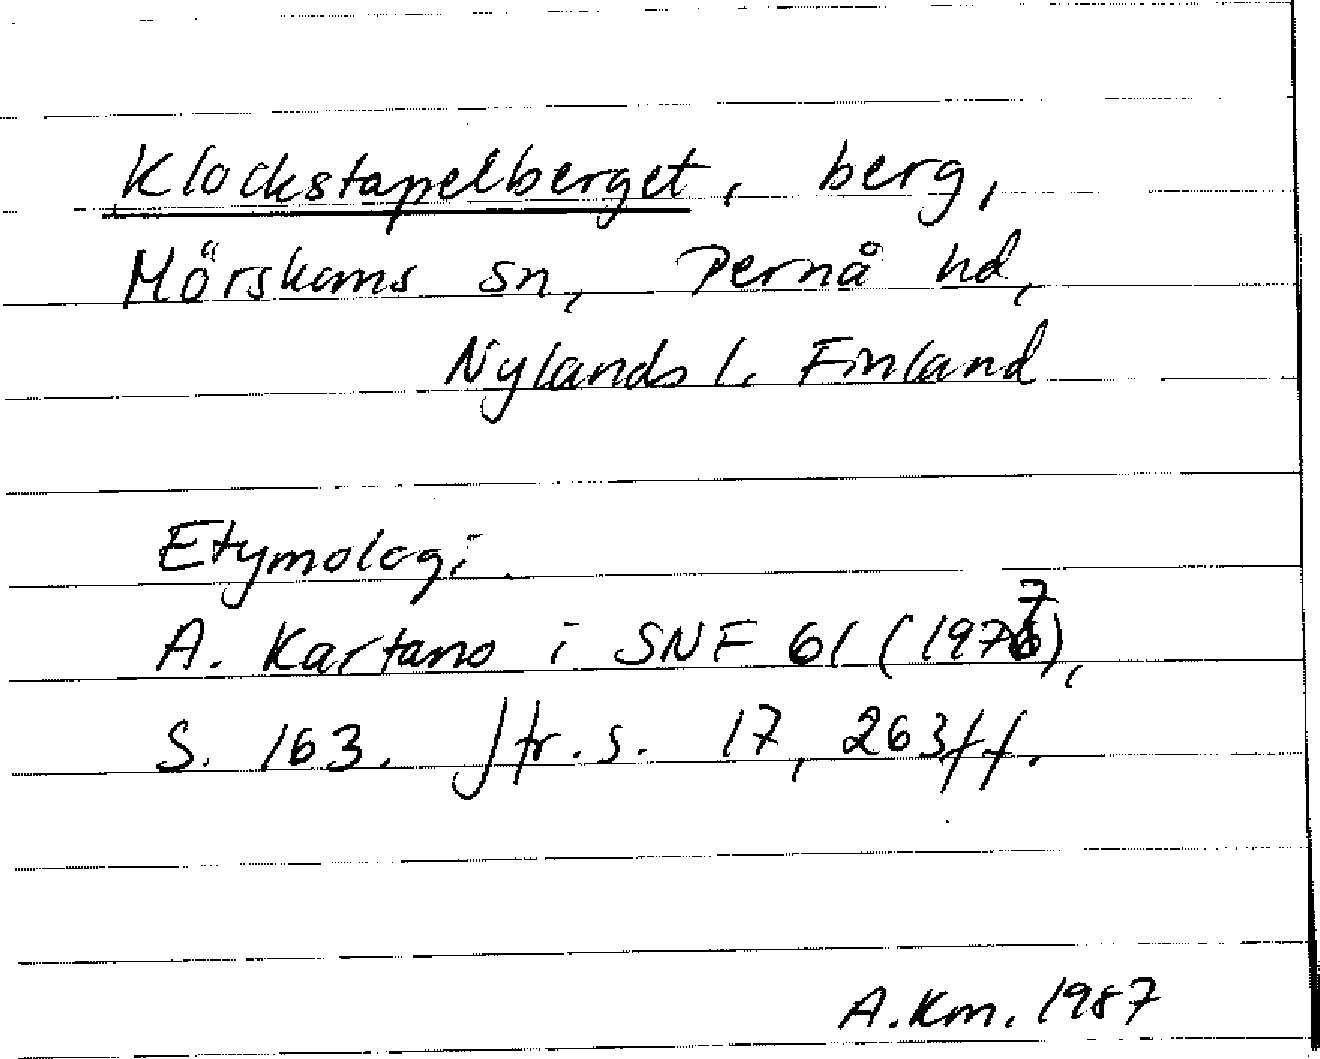 Klockstapelberget, berg,
Mörskoms sn, Pernå hd,
Nylands l. Finland
Etymologi.
A. Kartano i SNF 61 (1977),
S. 163. Jfr. s. 17, 263ff.
A.Km. 1987